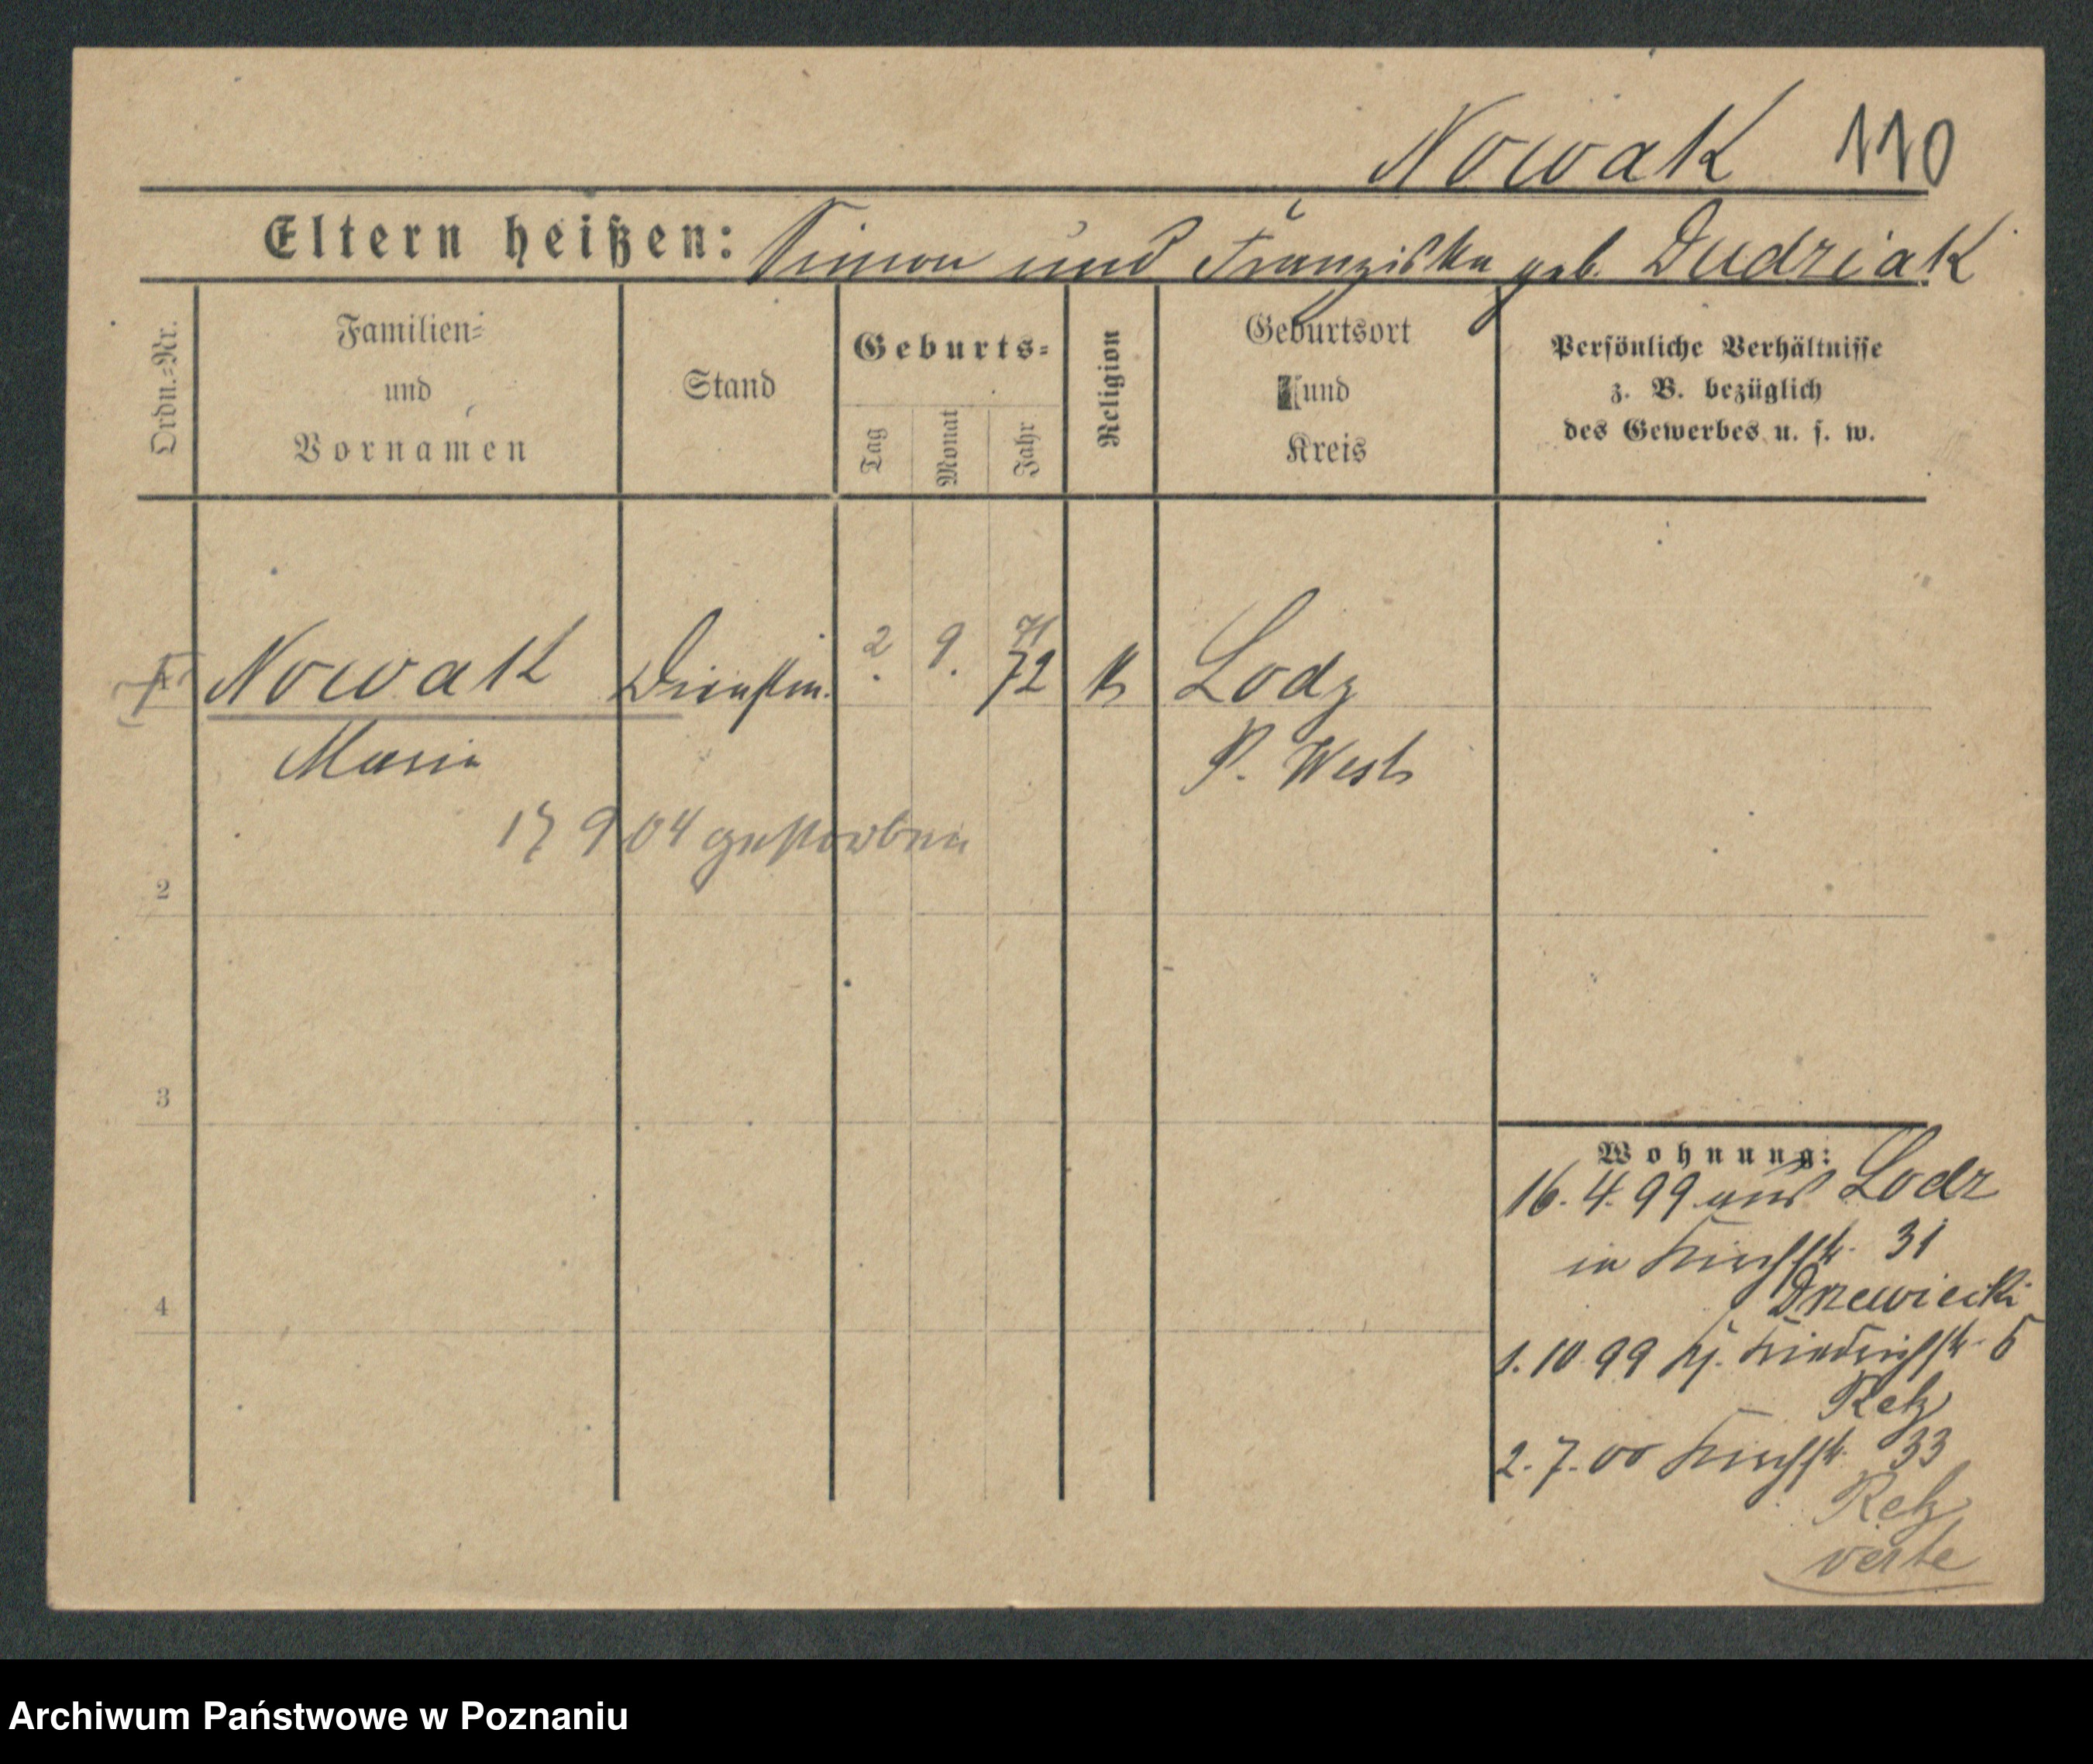 Nowak 110
Eltern heißen: Simon und Franziska geb. Dudziak
Ordn.-Nr.
Familien-
und
Vornamen
Stand
Geburts-
Tag
Monat
Jahr
Religion
Geburtsort
und
Kreis
Persönliche Verhältnisse
z. B. bezüglich
des Gewerbes u. s. w.
1 Nowak Dienstm. 2. 9. 71 72 k Lodz
Maria P. West
17 9 04 gestorben
2
3
4
Wohnung:
16. 4. 99 aus Lodz
in Kirchstr. 31
Drzewiecki
1. 10 99 Friedrichstr. 5
Retz
2. 7. 00 Kirchstr. 33
Retz
verte
Archiwum Państwowe w Poznaniu